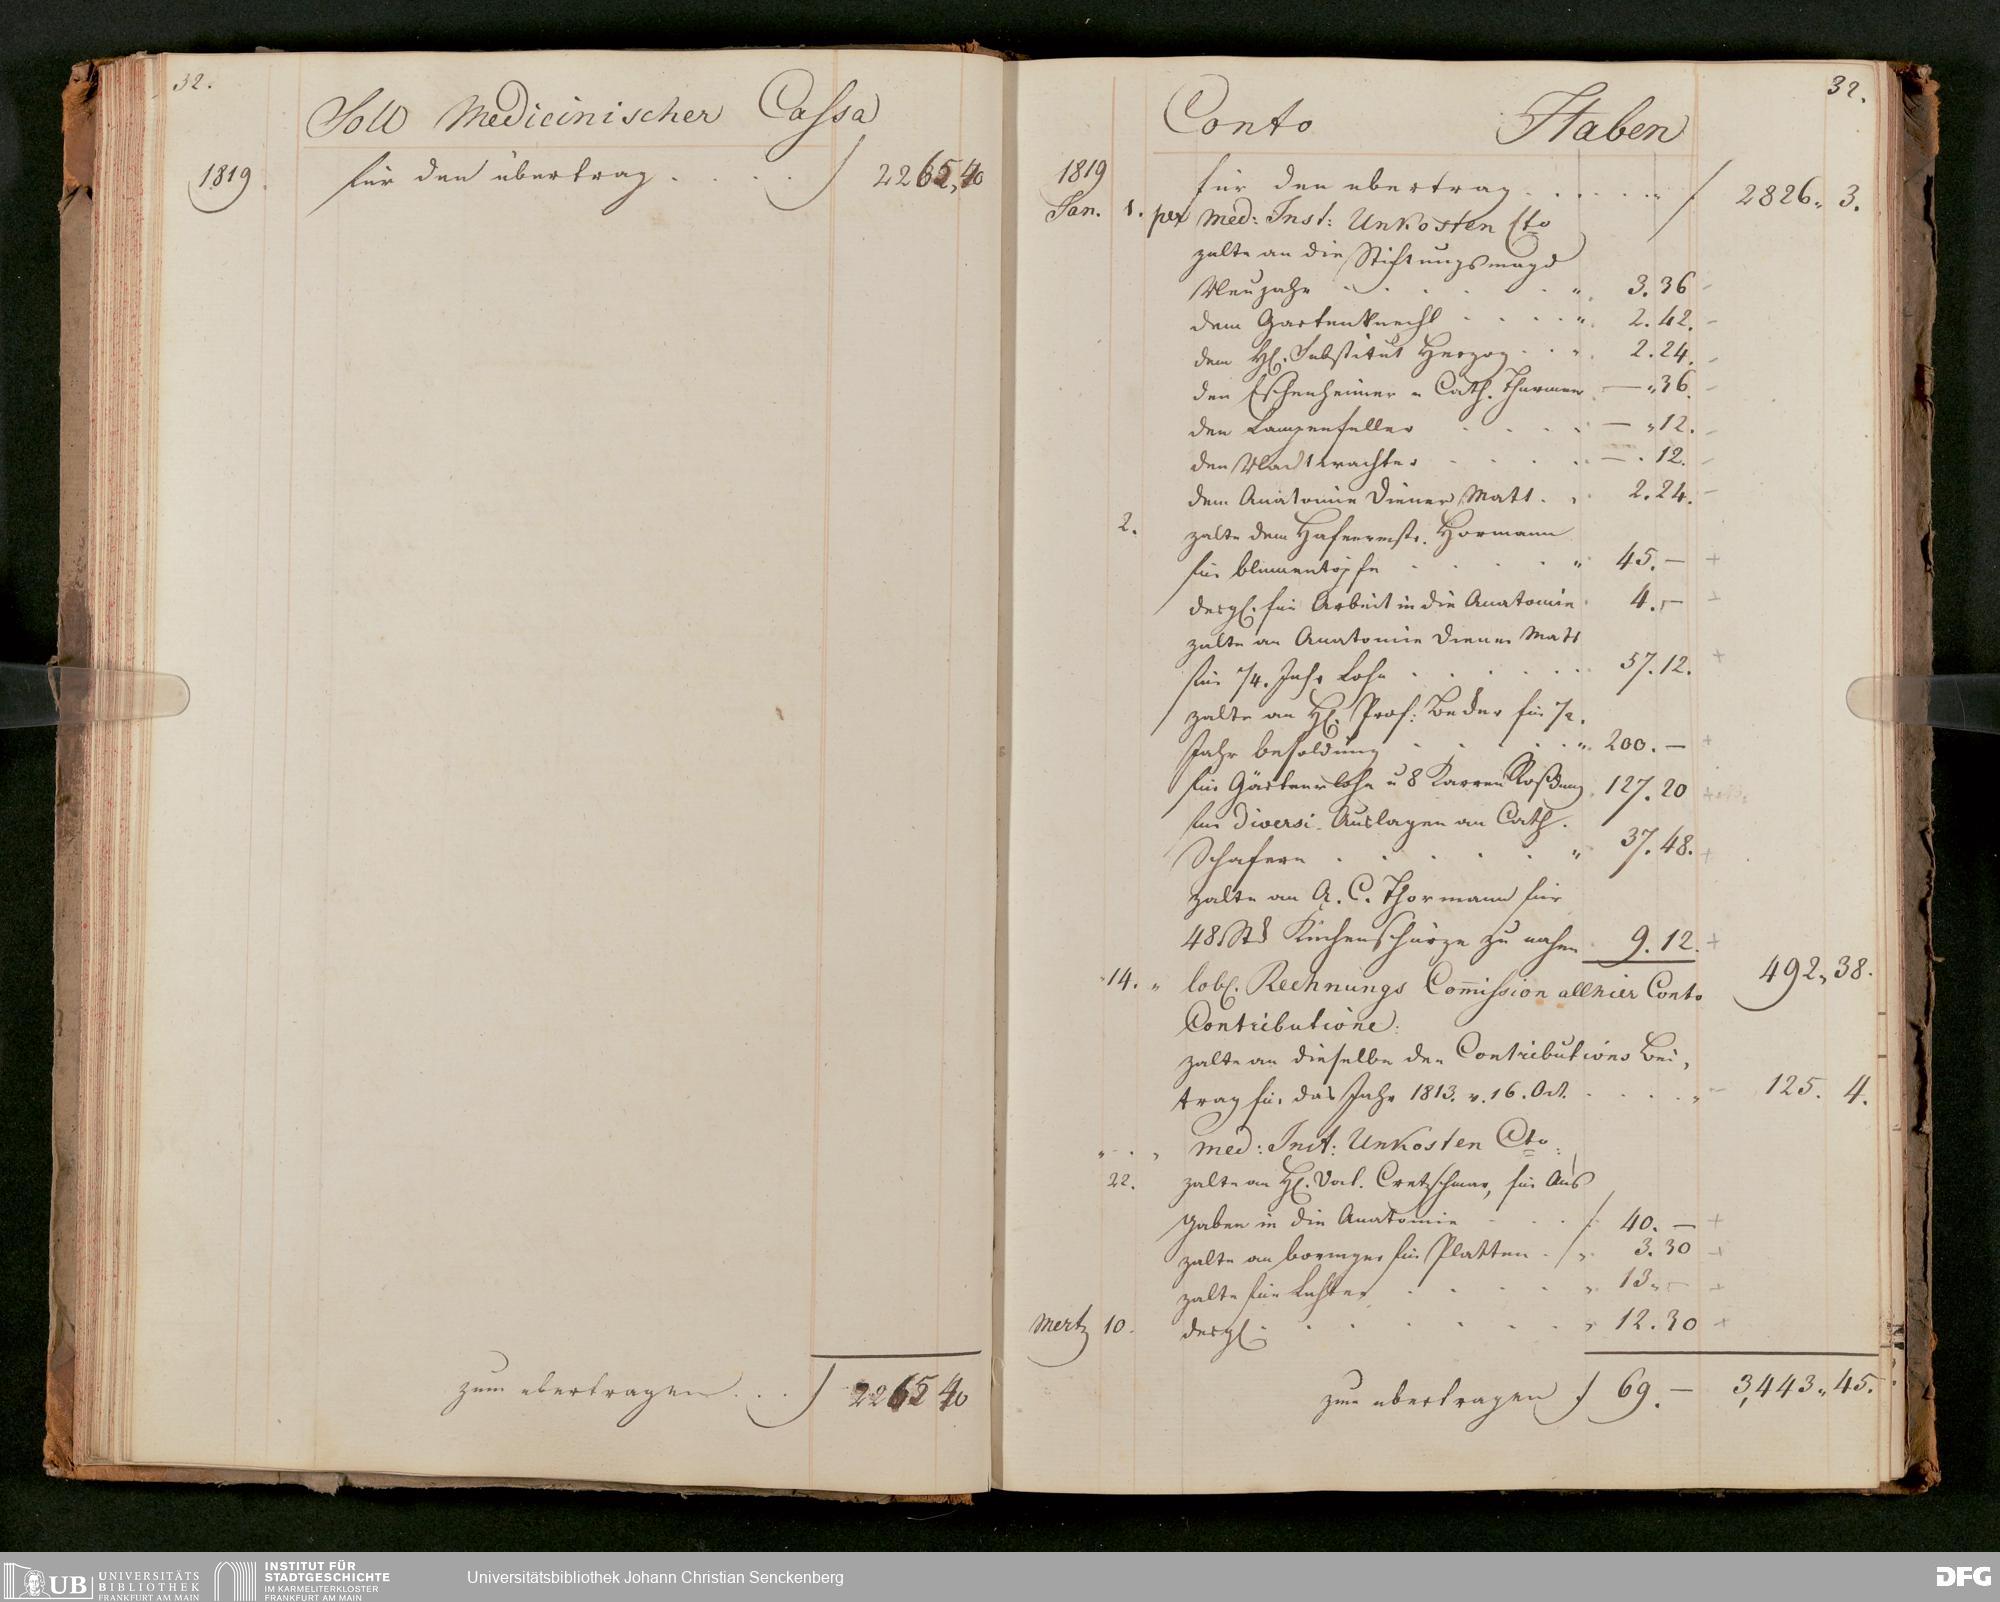 32.
Soll Medicinischer Cassa
1819. für den übertrag . . . . 2265,,40
zum ubertragen . . . 2265 40
32.
Conto Haben
1819 für den ubertrag . . . . . . 2826,, 3.
Jan. 1. per Med: Inst: Unkosten Cto
zalte an die Stiftungsmagd
Neujahr . . . . . . " 3.36
dem Gartenknecht . . . . " 2.42.
dem H. Substitut Herzog . . " 2.24.
den Eschenheimer u Cath. Thurmer — " 36.
den Lampenfuller . . . . — " 12.
den Nachtwachter . . . . — . 12.
dem Anatomie Diener Matt . . 2.24.
2. zalte dem Hafnermstr. Hormann
für blumentöpfe . . . . . " 45. —
desgl. für Arbeit in die Anatomie . 4. —
zalte an Anatomie Diener Matt
für 1/4. Jahr Lohn . . . . . . 57.12.
zalte an H. Prof: Beder für 1/2.
Jahr besoldung . . . . . " 200. —
für Gärtnerlohn u 8 Karren Roßdung . 127.20
für diversi Auslagen an Cath.
Schafern . . . . . . " 37.48.
zalte an A. C. Thormann für
48 Stk Küchenschürze zu nahen . 9.12.
492,,38.
14. " löbl. Rechnungs Commission allhier Conto
Contributione:
zalte an dieselbe den Contributions Bei,
trag für das Jahr 1813. v. 16. Oct. . . . . " 125. 4.
" . , med: Inst: Unkosten Cto:
22. zalte an H. Doct. Cretzschmar, für Aus
gaben in die Anatomie . . . 40. —
zalte an für Platten . . " 3.30
zalte für . . . . . " 13 " —
Mertz 10. desgl. . . . . . . . " 12.30
zum ubertragen 69. — 3,443,,45.
UB UNIVERSITÄTS
BIBLIOTHEK
FRANKFURT AM MAIN
INSTITUT FÜR
STADTGESCHICHTE
IM KARMELITERKLOSTER
FRANKFURT AM MAIN
Universitätsbibliothek Johann Christian Senckenberg
DFG